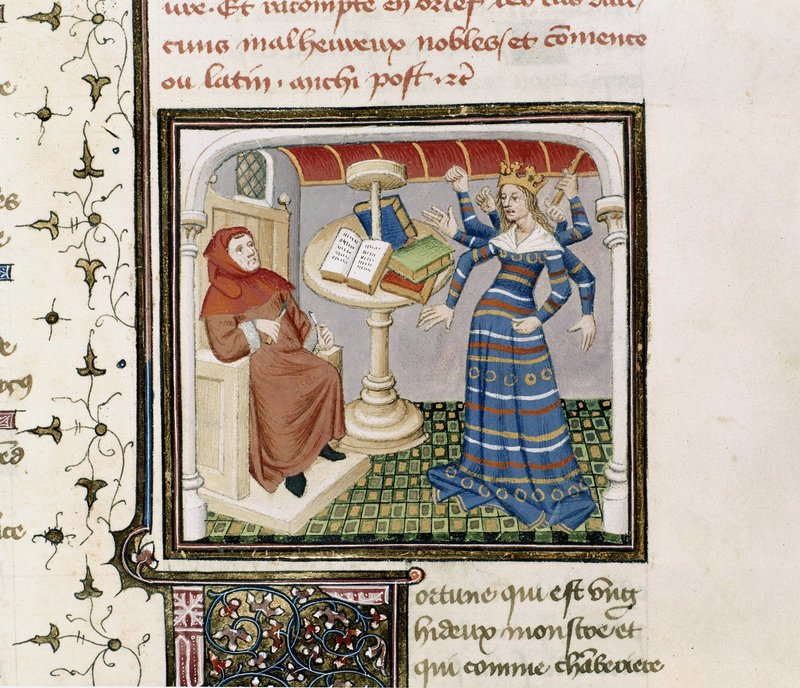 ure. Et racompte en brief les cas dau
cuns malheureux nobles / et cōmence
ou latin . michi post . rc̄
ortune qui est vng
hideux monstre et
qui comme chāberiere